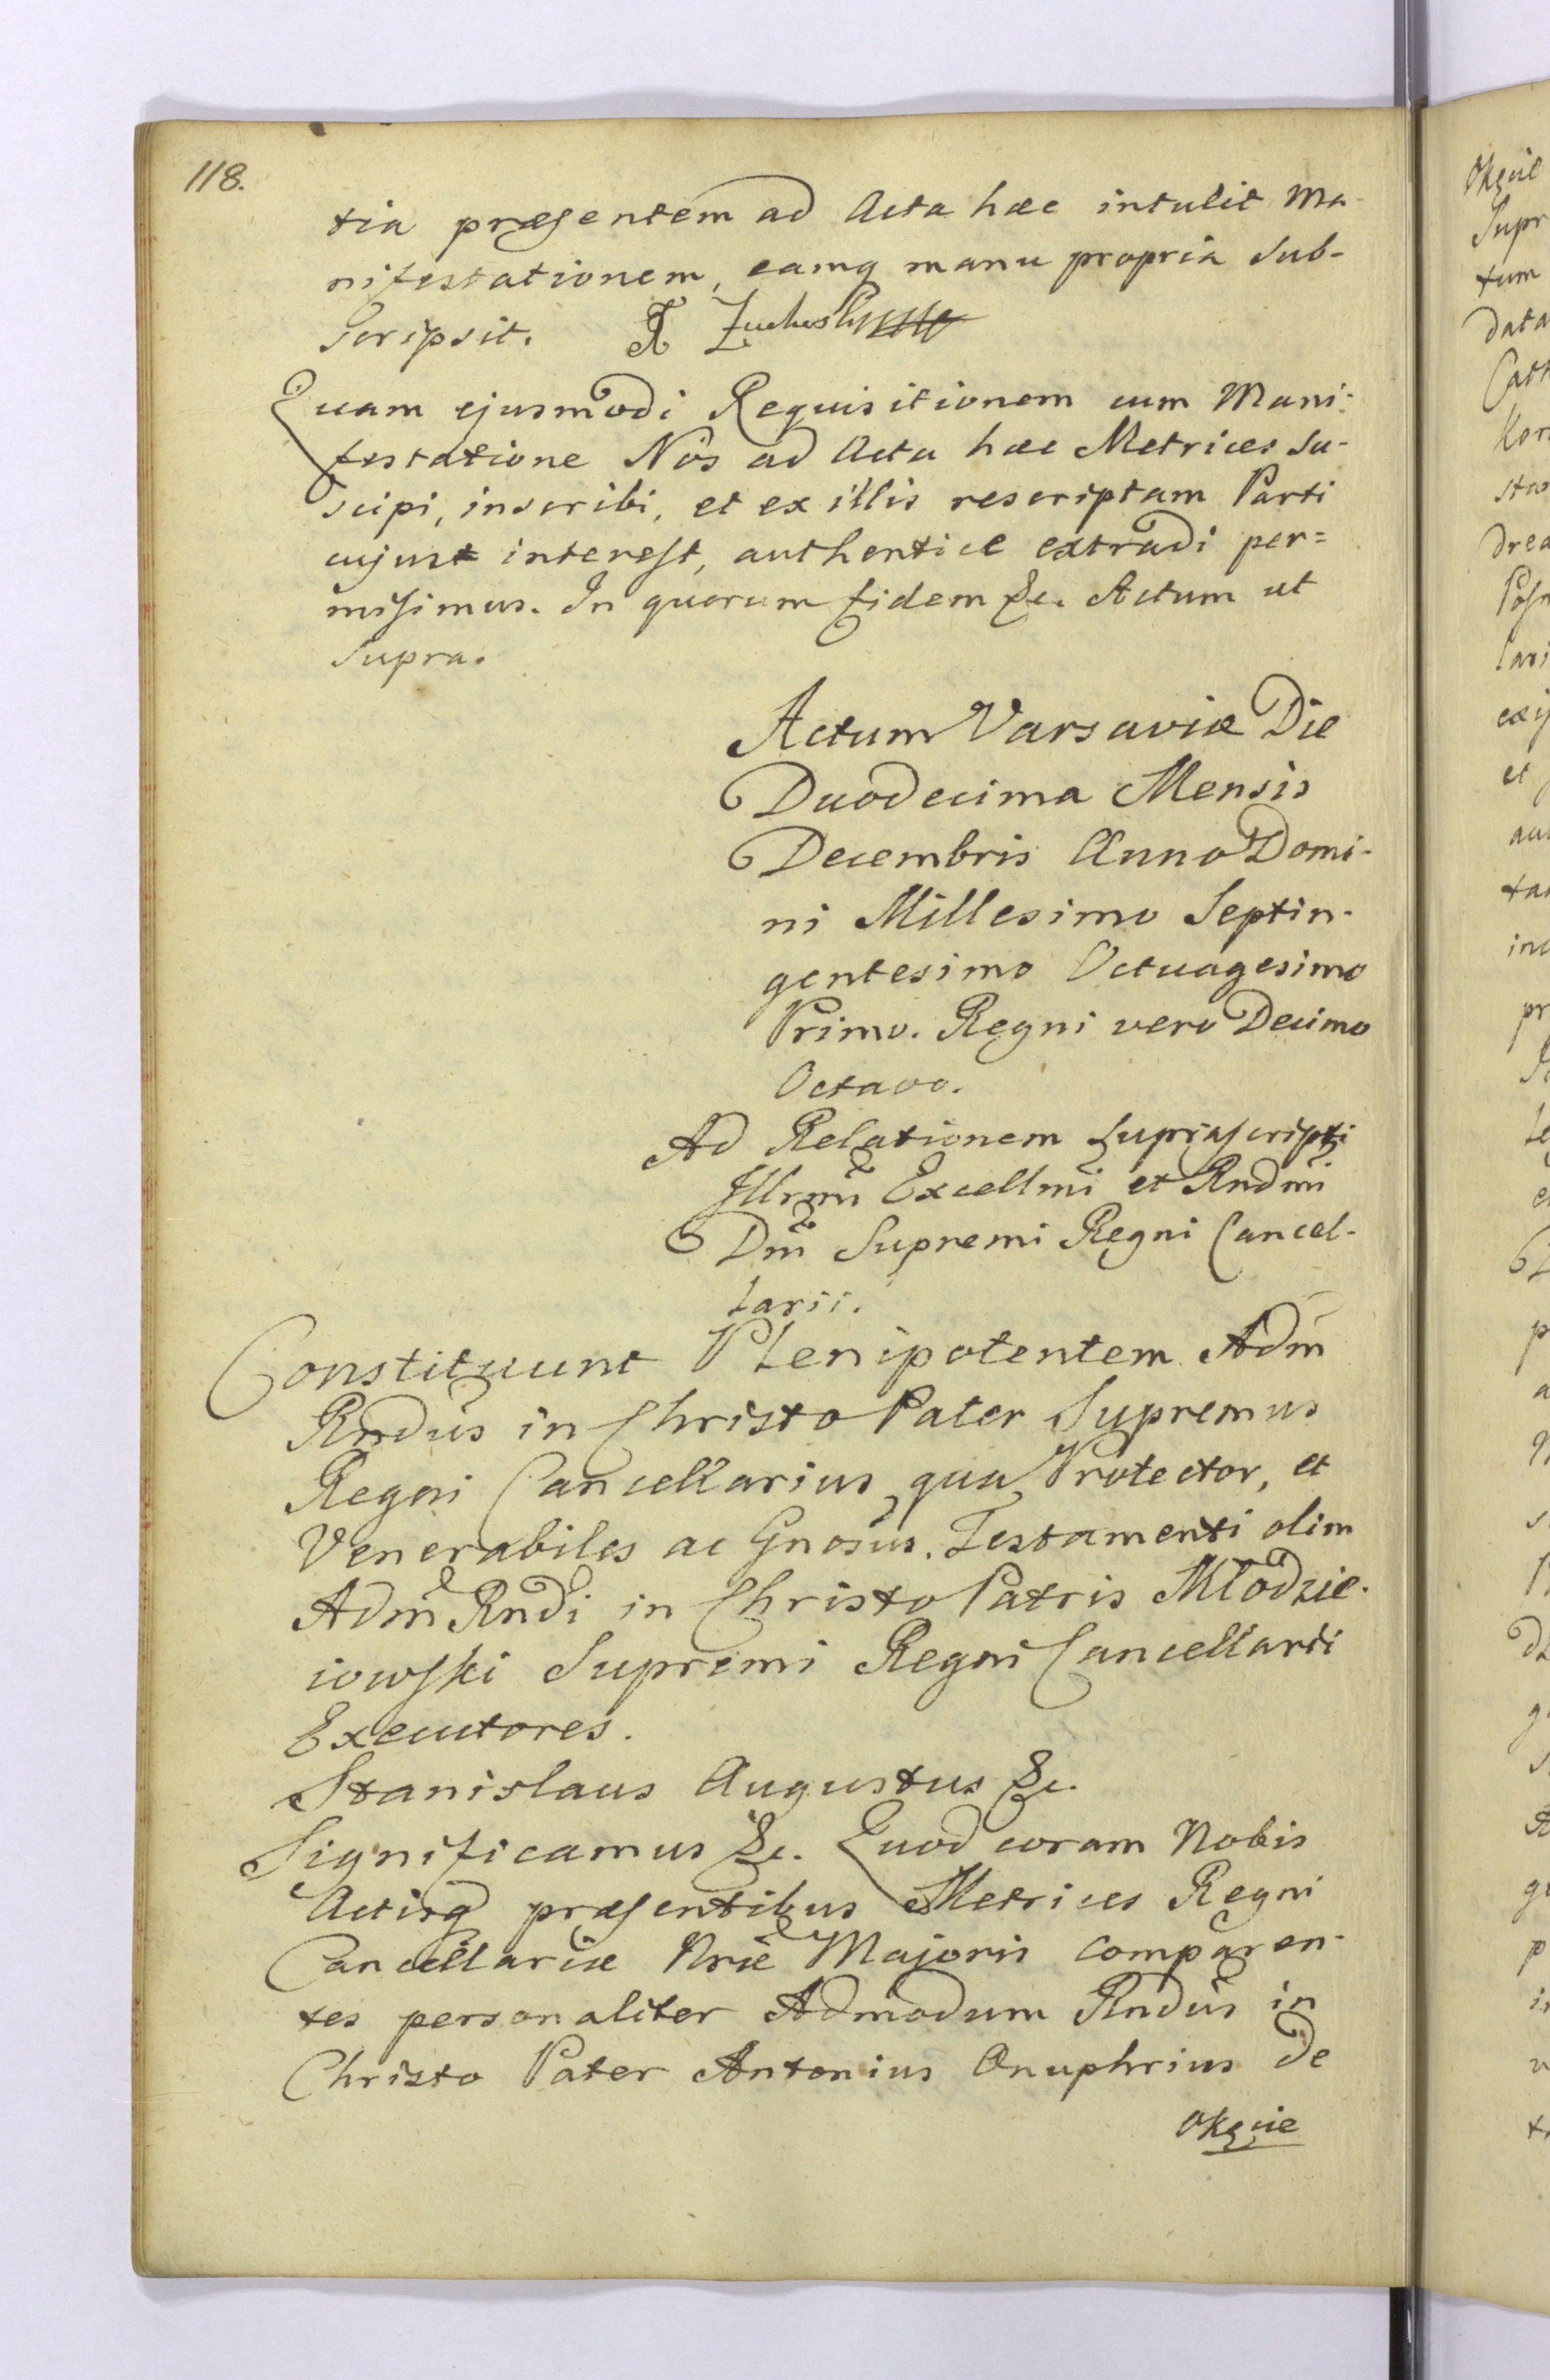 118.
tia præsentem ad Acta hæc intulit Ma-
nifestationem, eamq manu propria sub-
scripsit.
Quam ejusmodi Requisitionem cum Mani-
festatione Nos ad Acta hæc Metrices su-
scipi, inscribi, et ex illis rescriptam Parti
cujus interest, authentice extradi per=
misimus. In quorum fidem &c. Actum ut
supra.
Actum Varsaviæ Die
Duodecima Mensis
Decembris Anno Domi-
ni Millesimo Septin-
gentesimo Octuagesimo
Primo. Regni vero Decimo
Octavo.
Ad Relationem supra scripti
Illrmi Excellmi et Rndmi
Dni Supremi Regni Cancel-
larii.
Constituunt Plenipotentem Adm
Rndus in Christo Pater Supremus
Regni Cancellarius qua Protector, et
Venerabiles ac Gnosus. Testamenti olim
Adm Rndi in Christo Patris Młodzie-
iowski Supremi Regni Cancellarii
Executores.
Stanislaus Augustus &c.
Significamus &c. Quod coram Nobis
Actisq præsentibus Metrices Regni
Cancellariæ Nræ Majoris comparen-
tes personaliter Admodum Rndus in
Christo Pater Antonius Onuphrius de
Okęcie
Okęcie
Supr
tum
data
Cath
Kor
sta
drea
Posn
lari
exi
et
au
ta
inc
pr